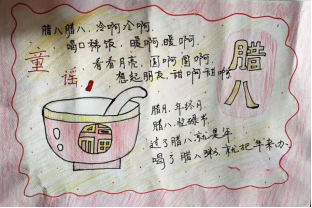 腊八腊八,冷啊冷啊.
喝口稀饭,暖啊暖啊.
看看月亮,圆啊圆啊.
想起朋友,甜啊甜啊.
童谣
腊八
福
腊月,年终月
腊八,
过了腊八,就是年
喝了腊八粥,就把年来办.